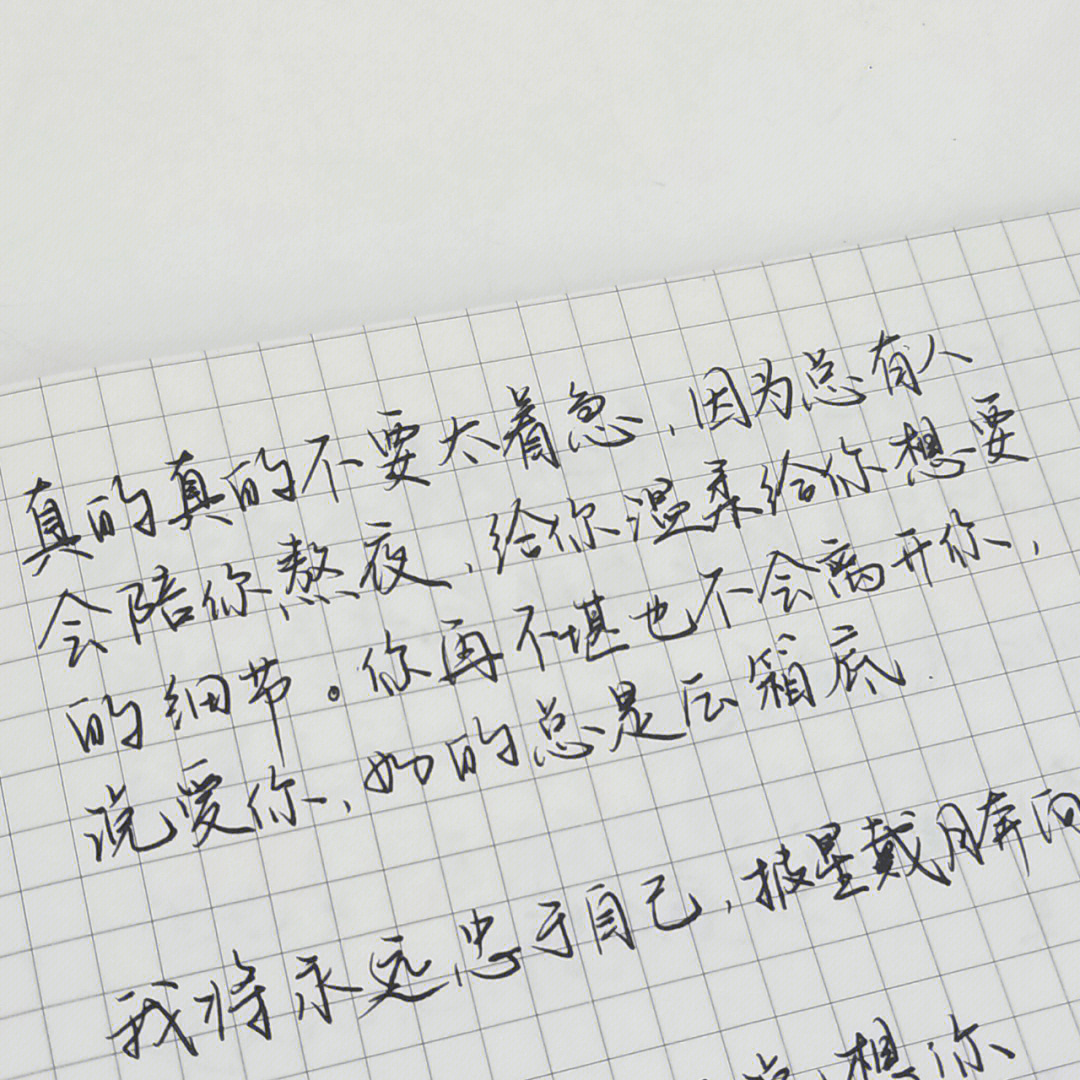 真的真的不要太着急，因为总有人
会陪你熬夜，给你温柔给你想要
的细节。你再不堪也不会离开你，
说爱你，好的总是压箱底.
我将永远忠于自己，披星戴月奔向
想你